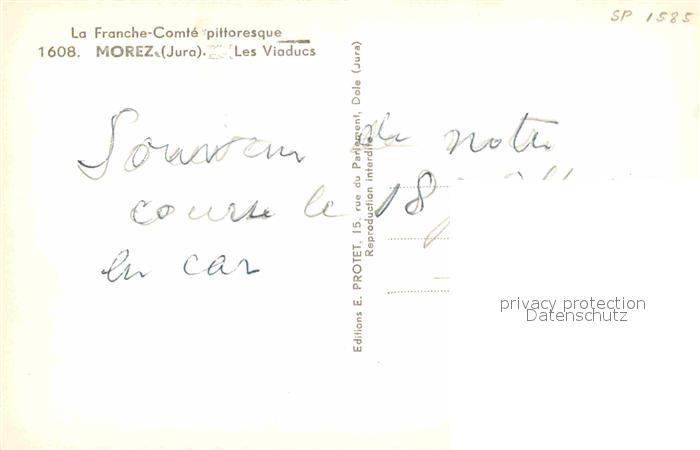 SP 1585
La Franche-Comté pittoresque
1608. MOREZ (Jura). Les Viaducs
Souvenir de notre
course le 18
en car
Editions E. PROTET, 15, rue du Parlement, Dole (Jura)
Reproduction interdite
privacy protection
Datenschutz